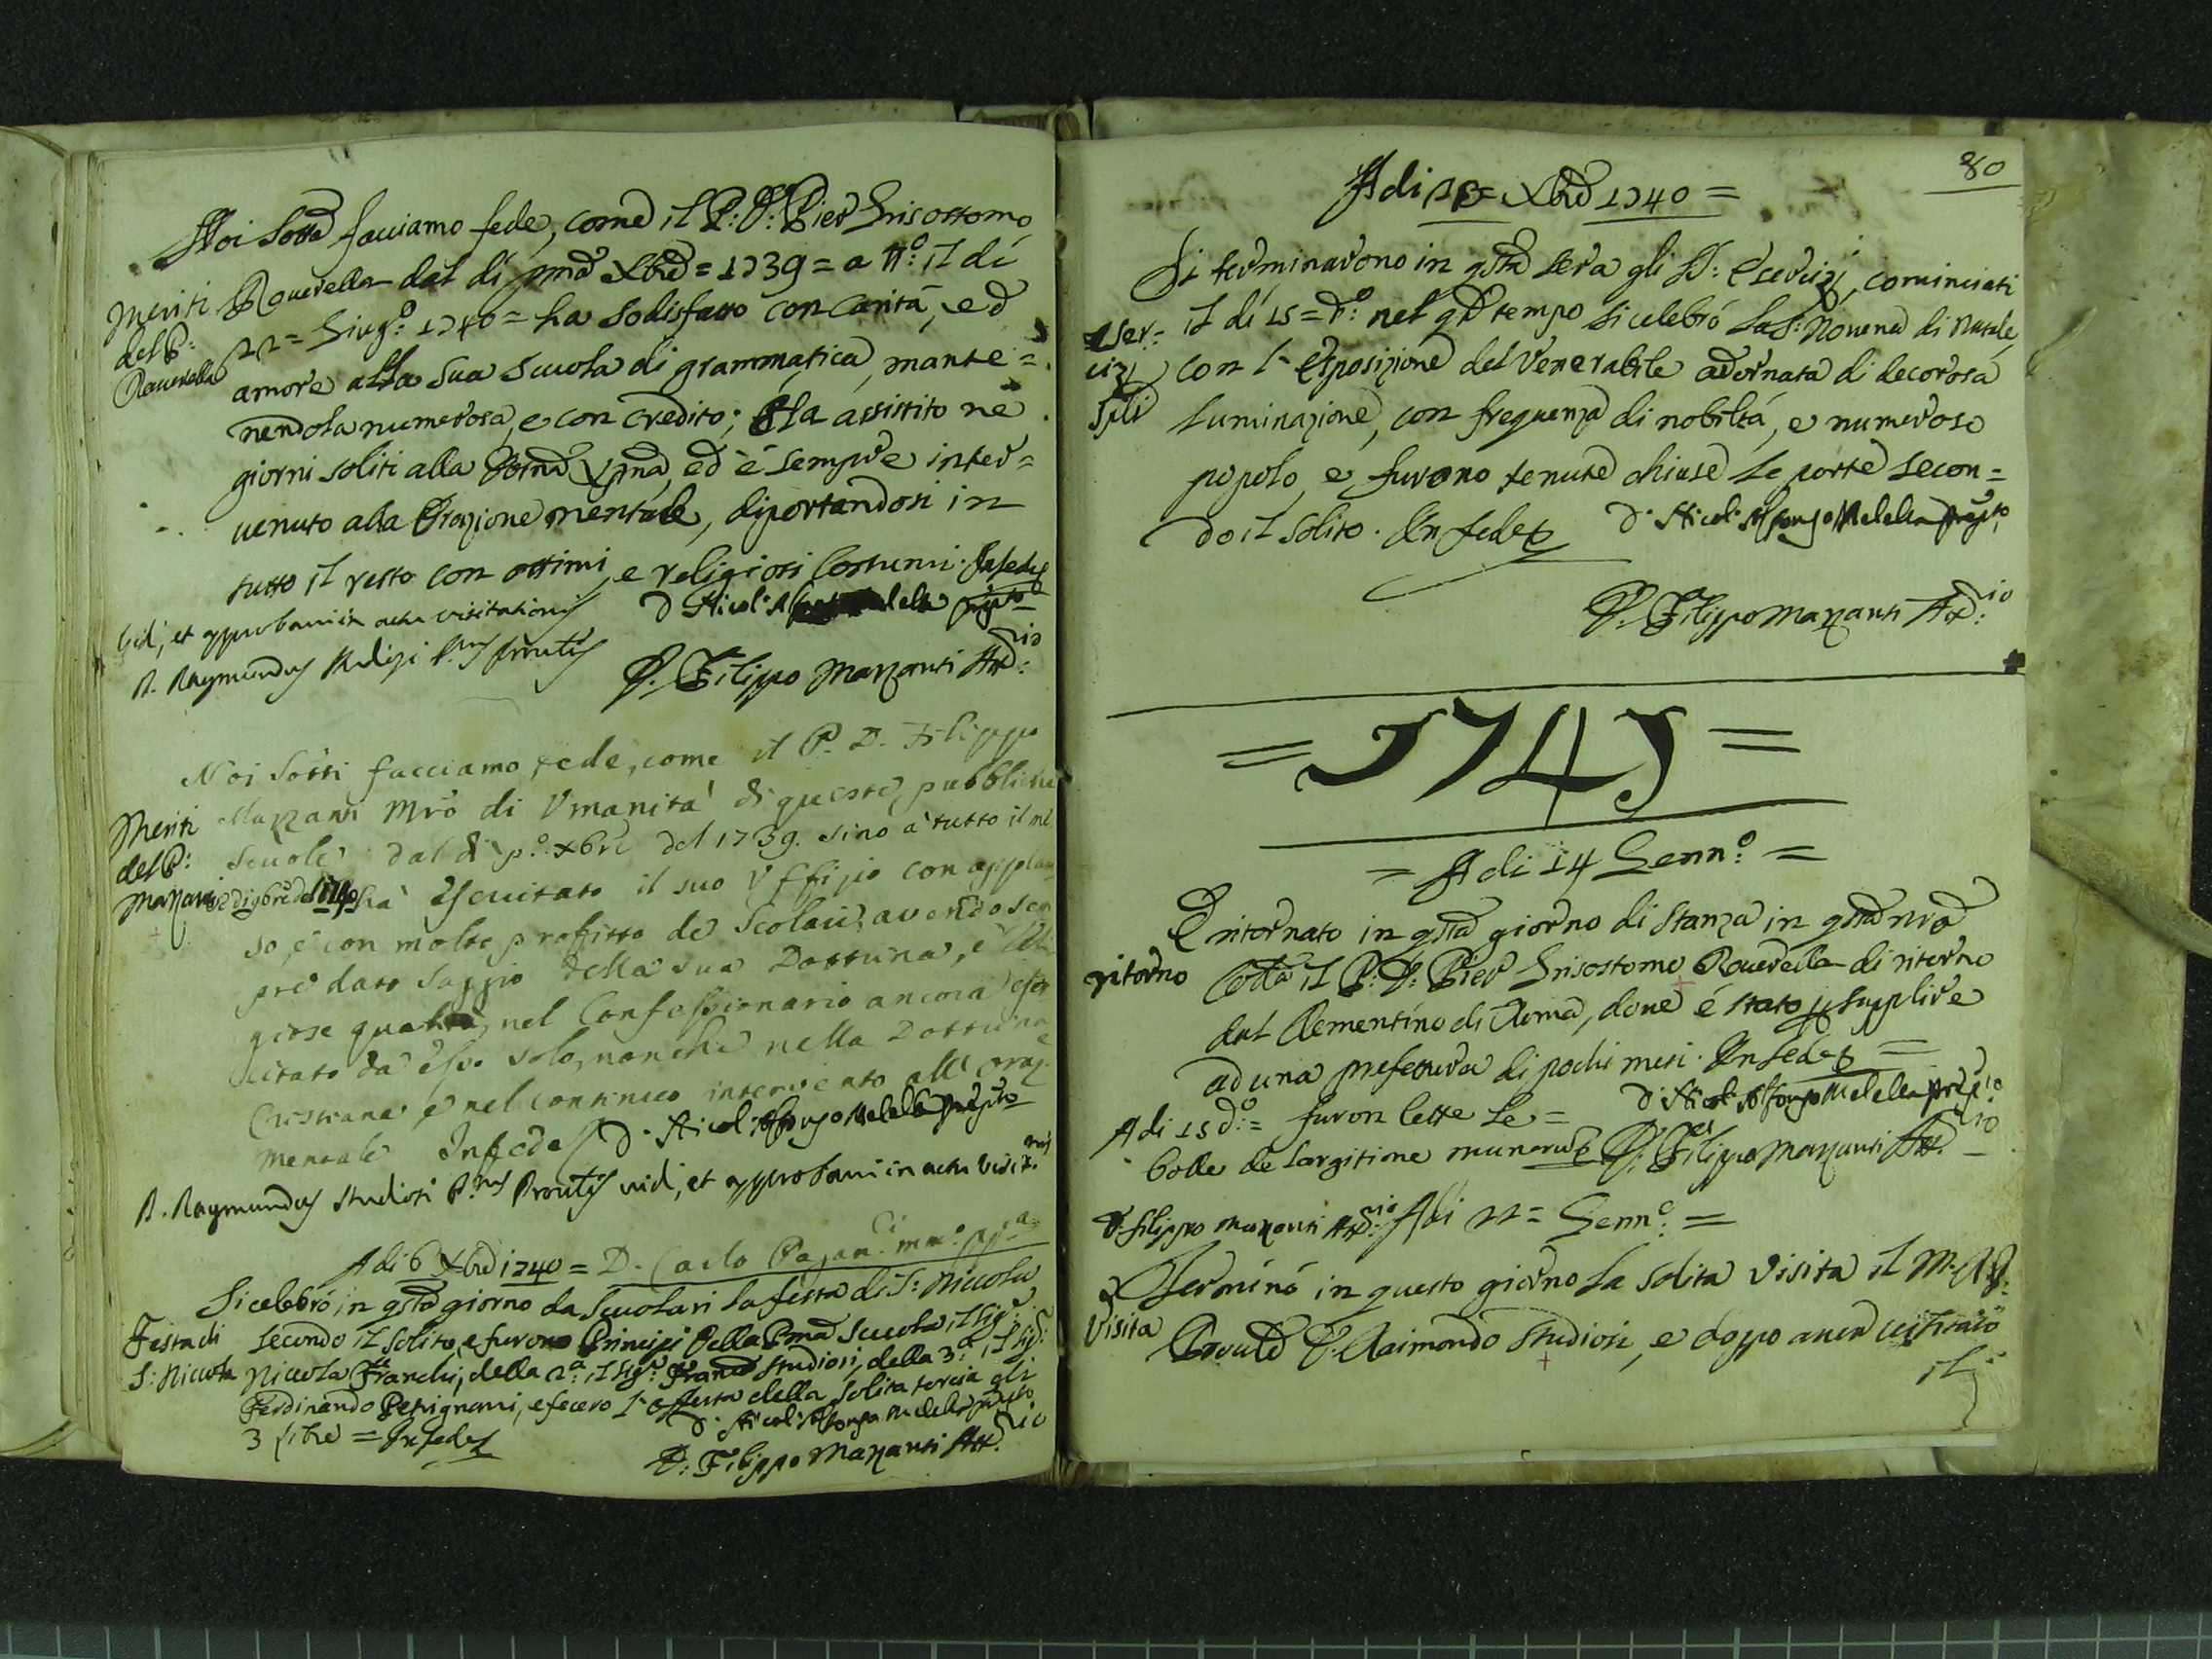 Noi Sotti facciamo fede, come il P: D: Pier Grisostomo
Meriti del P: Rouerella
Rouerella dal dì pmo Xbre = 1739 = a tt:o il dì
22 = Giug:o 1740 = ha sodisfatto con Carità, ed
amore alla sua scuola di grammatica, mante =
nendola numerosa, e con credito; Ha assistito ne
giorni soliti alla Dottna Xpna, ed è sempre inter =
uenuto alla Orazione mentale, diportandosi in
tutto il resto con ottimi, e religiosi Costumi. In fede
D Nicol: preposto
Vidi, et approbaui in actu visitationis
D. Raymundus Studiosi
D. Filippo Mazzanti Att:rio
Noi Sotti facciamo fede, come il P. D. Filippo
Meriti del P: Mazzanti
Mazzanti Mro di Vmanità di queste pubbliche
Scuole dal dì p:o Xbre del 1739. sino à tutto il
di 9bre del 1740 hà esercitato il suo Vffizio con applau
so, e con molto profitto de Scolari, avendo sem
pre dato saggio della sua Dottrina, e Reli
giose qualità, nel Confessionario ancora eser
citato da esso solo, nonche nella Dottrina
Cristiana, e nel continuo intervento all'oraz
mentale In fede D. Nicol: Alfonso Melella preposto
D. Raymundus Studiosi vid, et approbaui in actu Visit:nis
Adi 6 Xbre 1740 = D. Carlo
Si celebrò in qsto giorno da Scuolari la festa di S: Niccola
Festa di S: Niccola
secondo il solito, e furono Principi della Pma Scuola, il Sig:r
Niccola Franchi, della 2:a il Sig:r Franco Studiosi, della 3:a il Sig:r
Ferdinando Petrignani, e fecero l'offerta della solita torcia gli
3 = In fede
D. Nicol: Alfonso Melella preposto
D: Filippo Mazzanti Att:rio
80
Adi Xbre 1740 =
Si terminarono in qsta sera gli SS: Esercizi, cominciati
Eser= cizi Spli
il dì 15 = d:o nel ql tempo si celebrò la S: Nouena di Natale,
con l'Esposizione del Venerabile adornata di decorosa
luminazione, con frequenza di nobiltà, e numeroso
popolo, e furono tenute chiuse le porte secon =
do il solito. In fede
D. Nicol: Alfonso Melella preposto
D. Filippo Mazzanti Att:rio
= 1741 =
= Adi 14 Genn:o =
È ritornato in qsto giorno di stanza in qsta nra
ritorno
il P: D: Pier Grisostomo Rouerella di ritorno
dal Clementino di Roma, doue è stato p supplire
ad una prefettura di pochi mesi. In fede =
D. Nicol: Alfonso Melella prep:to
Adi 15 d:o = furon lette le =
bolle de largitione munerum D. Filippo Mazzanti Att:rio
D. Filippo Mazzanti Att:rio Adi 22 = Genn:o =
Terminò in questo giorno la solita Visita il M. R. P:
Visita
Proule D. Raimondo Studiosi, e doppo auer uisitato
il